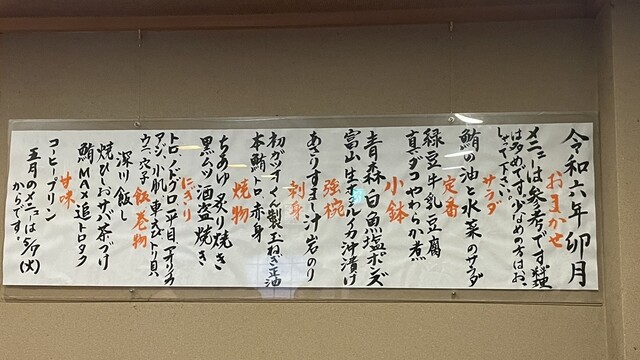 令和六年卯月
おまかせ
メニューは参考です 料理
は多めです。少なめの方はお
しゃって下さい。
サラダ
鮪の油と水菜のサラダ
定番
緑豆牛乳豆腐
真ダコやわらか煮
小鉢
青森 白魚塩ポンズ
富山 生ホタルイカ沖漬け
強椀
あさりすまし汁 岩のり
刺身
初ガツオくん製玉ねぎ正油
本鮪 トロ 赤身
焼物
ちあゆ炙り焼き
黒ムツ 酒盗焼き
にぎり
トロ ノドグロ 平目 アオリイカ
アジ 小肌 車エビ トリ貝
ウニ 穴子
飯 巻物
深川飯し
焼ひらおサバ茶づけ
鮪MAX追トロタク
甘味
コーヒープリン
五月のメニューは5/7(火)
からです。